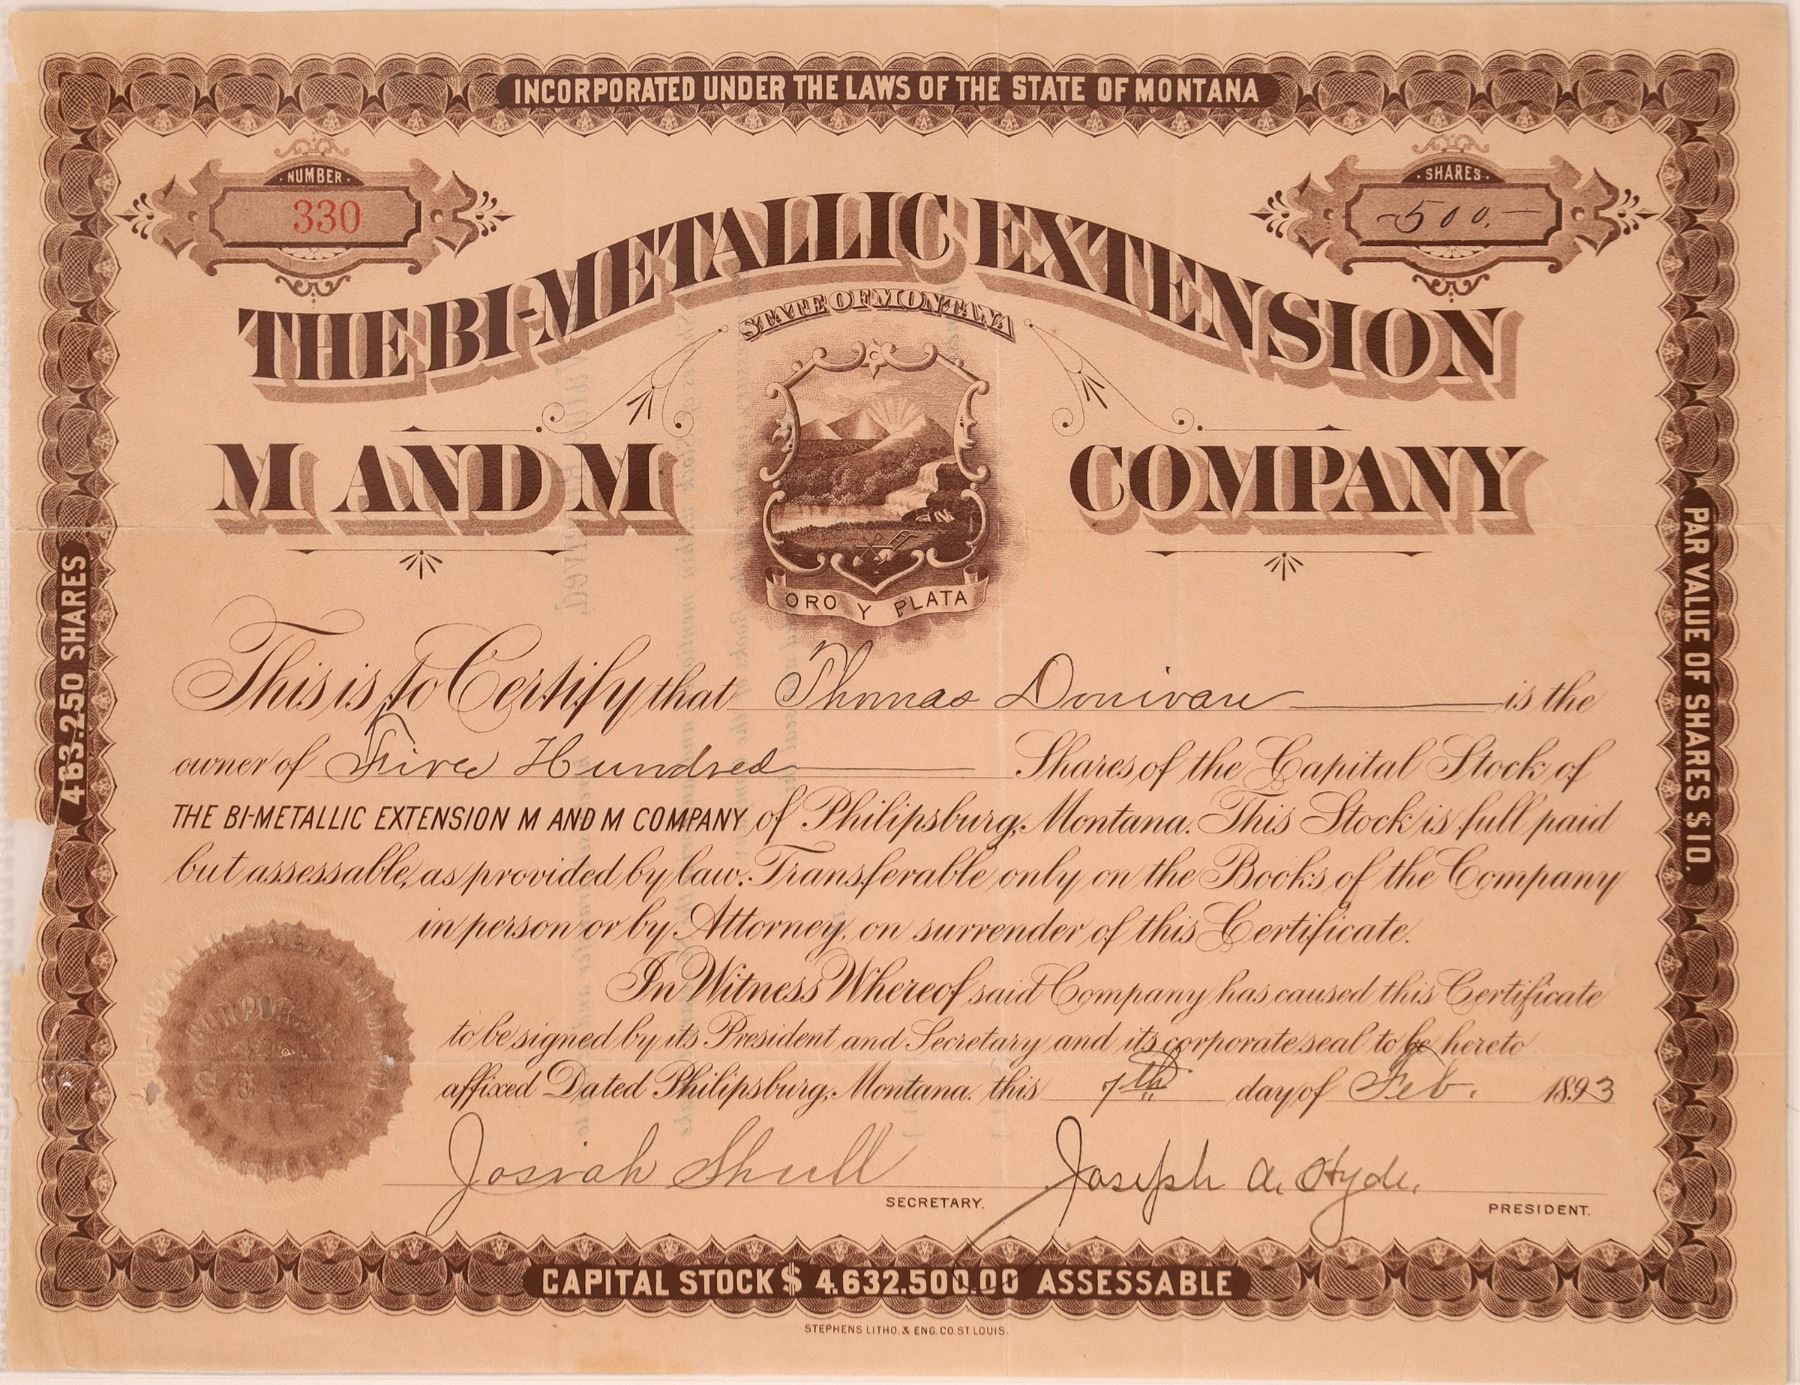 INCORPORATED UNDER THE LAWS OF THE STATE OF MONTANA
NUMBER
330
SHARES
500.
THE BI-METALLIC EXTENSION
STATE OF MONTANA
M AND M COMPANY
ORO Y PLATA
463.250 SHARES
PAR VALUE OF SHARES $10.
This is to Certify that Thomas Donivan is the
owner of Five Hundred Shares of the Capital Stock of
THE BI-METALLIC EXTENSION M AND M COMPANY of Philipsburg, Montana. This Stock is full paid
but assessable, as provided by law. Transferable only on the Books of the Company
in person or by Attorney, on surrender of this Certificate.
In Witness Whereof said Company has caused this Certificate
to be signed by its President and Secretary and its corporate seal to be hereto
affixed Dated Philipsburg, Montana. this 7th day of Feb. 1893
Josiah Shull
SECRETARY.
Joseph A. Hyde.
PRESIDENT.
CAPITAL STOCK $ 4.632.500.00 ASSESSABLE
STEPHENS LITHO. & ENG. CO. ST. LOUIS.